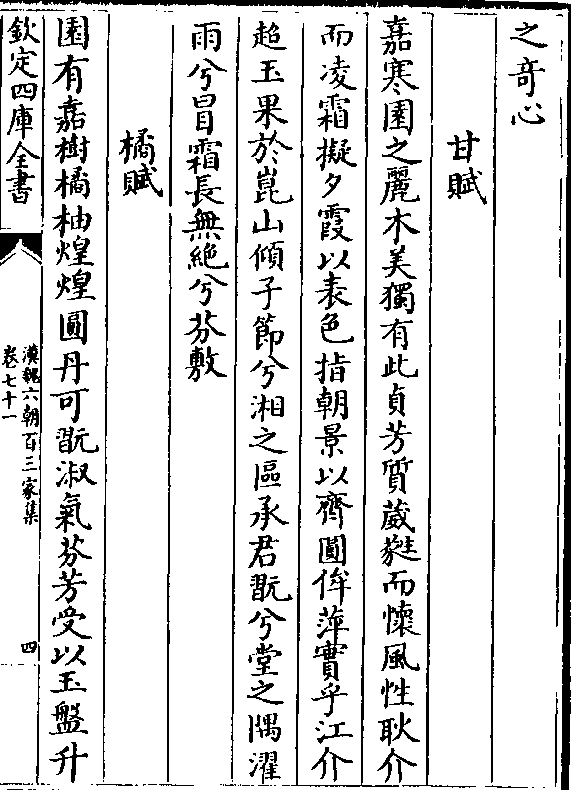 之竒心
甘賦
嘉寒園之麗木美獨有此貞芳質葳蕤而懷風性耿介
而凌霜擬夕霞以表色指朝景以齊圓侔萍實乎江介
超玉果於崑山傾子節兮湘之區承君翫兮堂之隅濯
雨兮冒霜長無絶兮芬敷
橘賦
園有嘉樹橘柚煌煌圓丹可翫淑氣芬芳受以玉盤升
欽定四庫全書
漢魏六朝百三家集
卷七十一
四